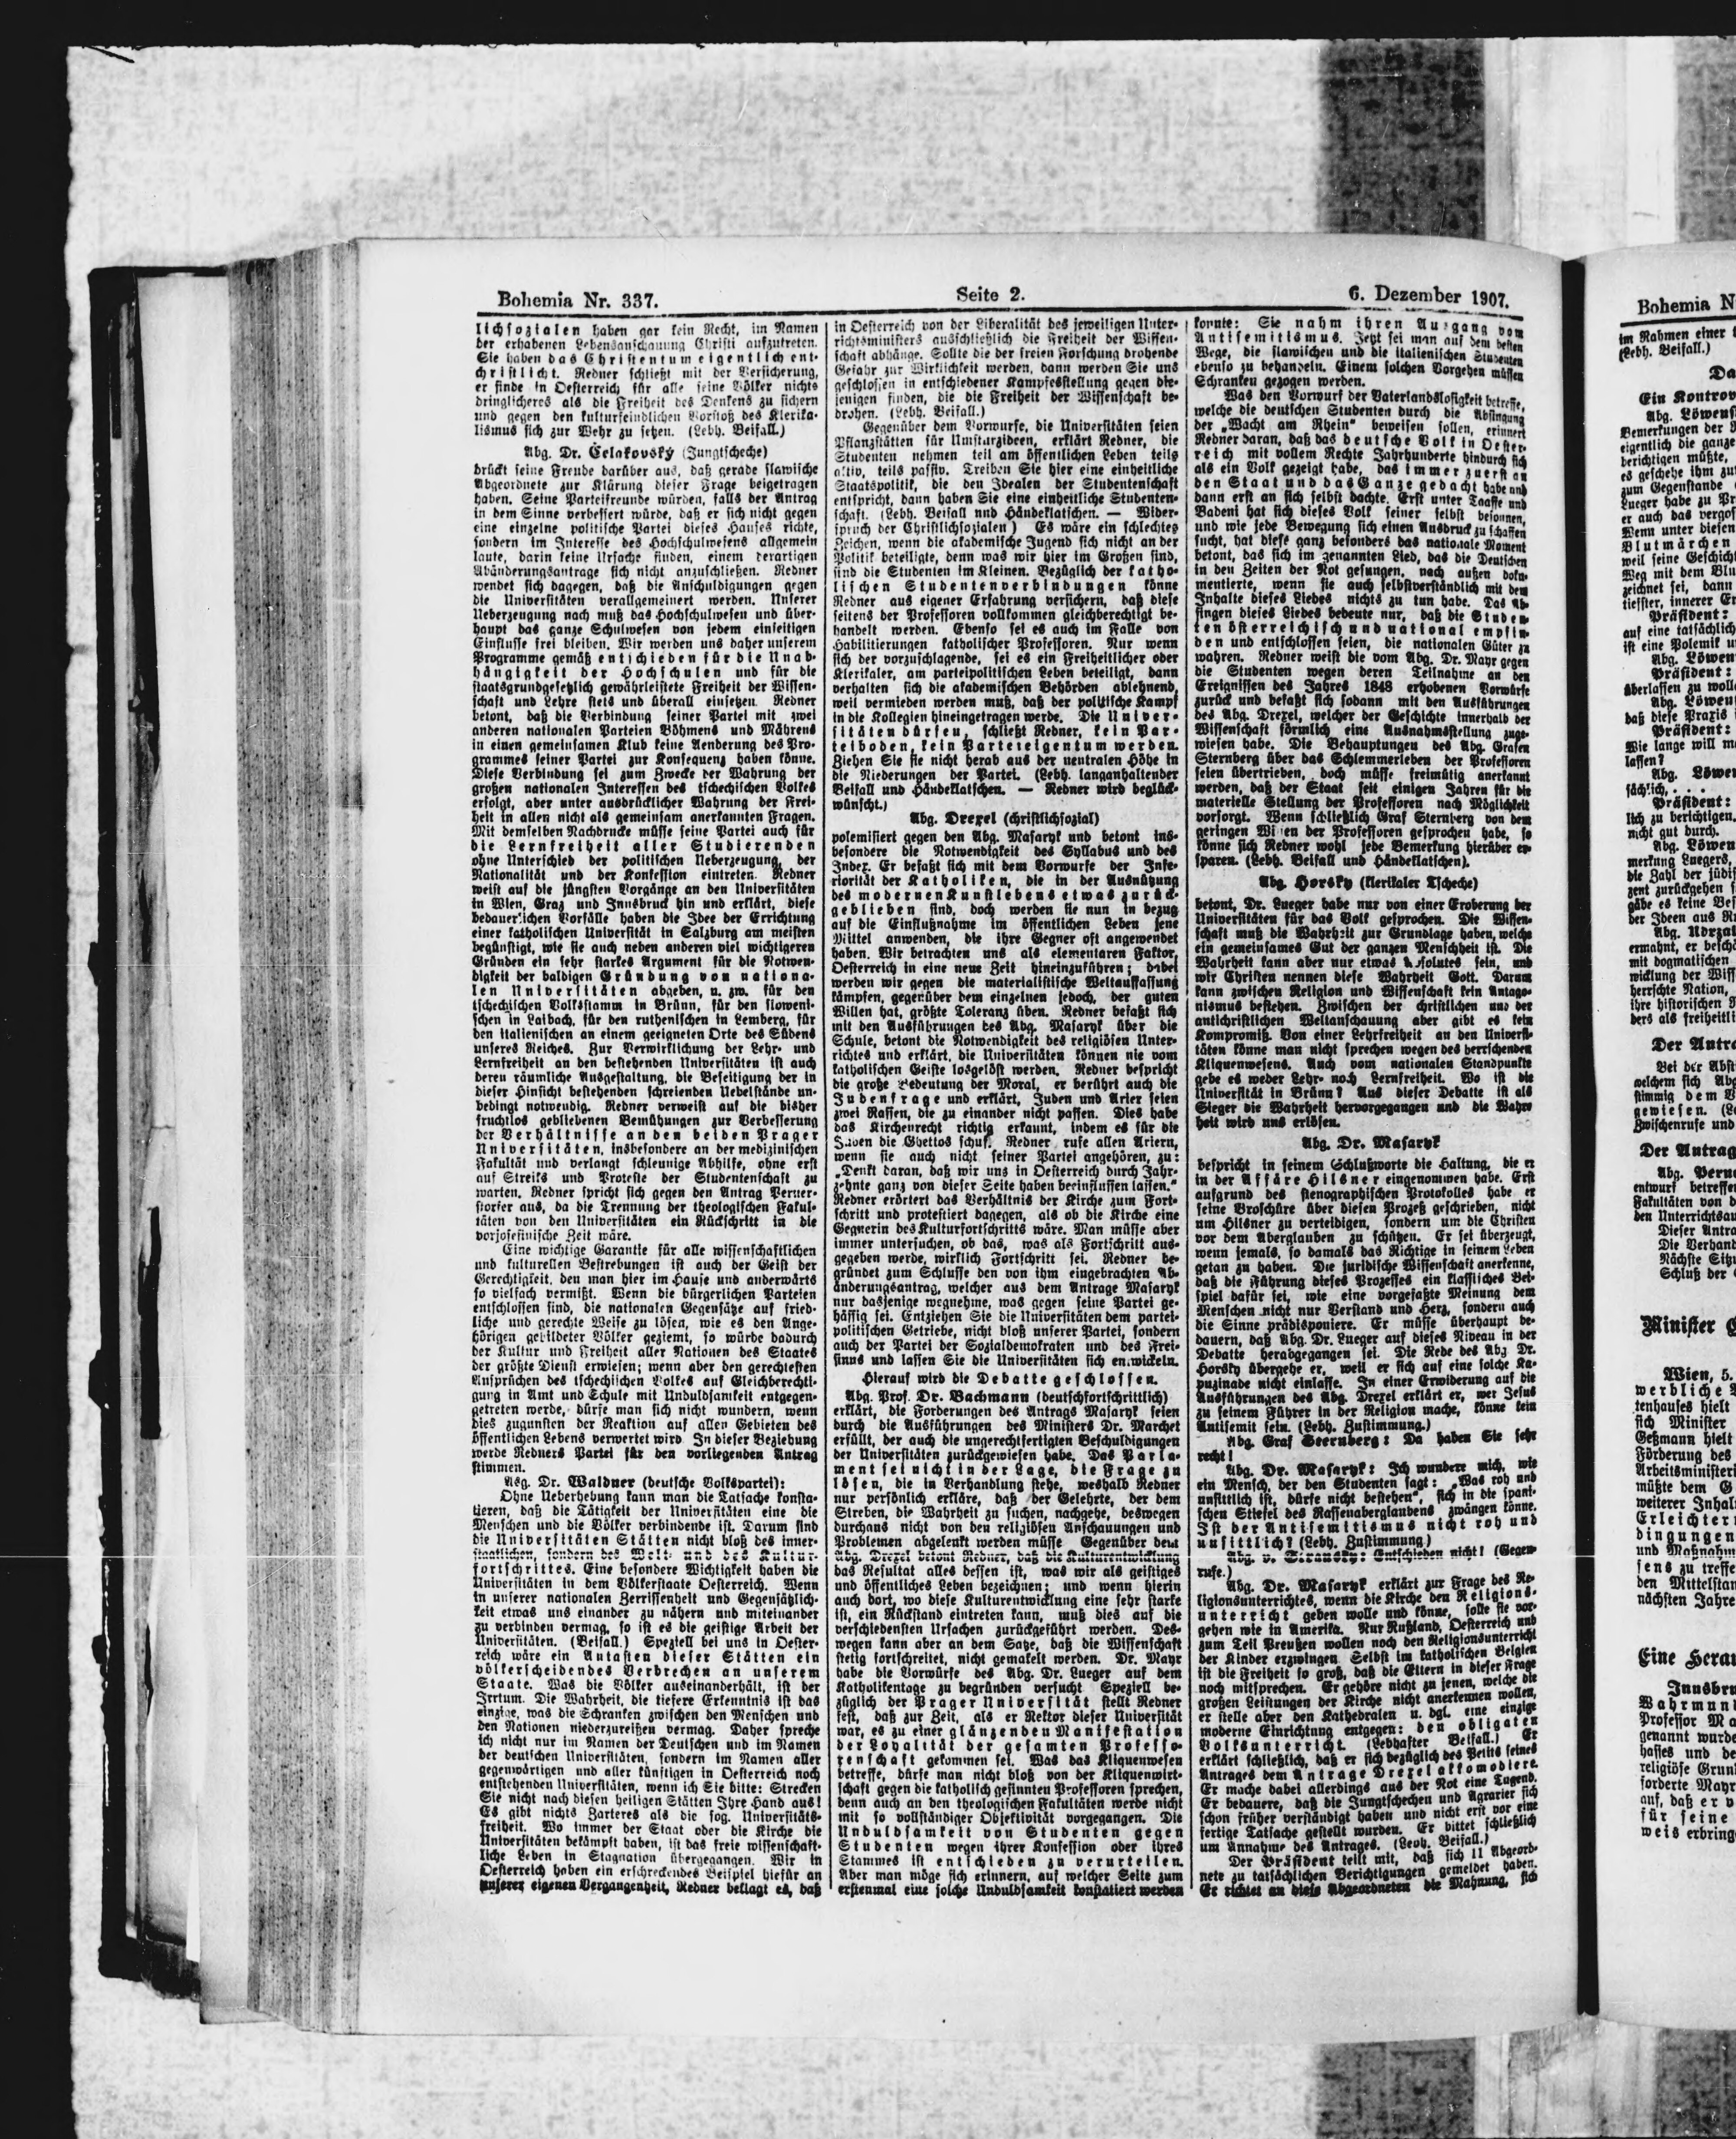 Bohemia Nr. 337.
Seite 2.
6. Dezember 1907.
lichsozialen haben gar kein Recht, im Namen
der erhabenen Lebensanschauung Christi aufzutreten.
Sie haben das Christentum eigentlich ent-
christlicht. Redner schließt mit der Versicherung,
er finde in Oesterreich für alle seine Völker nichts
dringlicheres als die Freiheit des Denkens zu sichern
und gegen den kulturfeindlichen Vorstoß des Klerika-
lismus sich zur Wehr zu setzen. (Lebh. Beifall.)
Abg. Dr. Čelakovský (Jungtscheche)
drückt seine Freude darüber aus, daß gerade slawische
Abgeordnete zur Klärung dieser Frage beigetragen
haben. Seine Parteifreunde würden, falls der Antrag
in dem Sinne verbessert würde, daß er sich nicht gegen
eine einzelne politische Partei dieses Hauses richte,
sondern im Interesse des Hochschulwesens allgemein
laute, darin keine Ursache finden, einem derartigen
Abänderungsantrage sich nicht anzuschließen. Redner
wendet sich dagegen, daß die Anschuldigungen gegen
die Universitäten verallgemeinert werden. Unserer
Ueberzeugung nach muß das Hochschulwesen und über-
haupt das ganze Schulwesen von jedem einseitigen
Einflusse frei bleiben. Wir werden uns daher unserem
Programme gemäß entschieden für die Unab-
hängigkeit der Hochschulen und für die
staatsgrundgesetzlich gewährleistete Freiheit der Wissen-
schaft und Lehre stets und überall einsetzen. Redner
betont, daß die Verbindung seiner Partei mit zwei
anderen nationalen Parteien Böhmens und Mährens
in einen gemeinsamen Klub keine Aenderung des Pro-
grammes seiner Partei zur Konsequenz haben könne.
Diese Verbindung sei zum Zwecke der Wahrung der
großen nationalen Interessen des tschechischen Volkes
erfolgt, aber unter ausdrücklicher Wahrung der Frei-
heit in allen nicht als gemeinsam anerkannten Fragen.
Mit demselben Nachdrucke müsse seine Partei auch für
die Lernfreiheit aller Studierenden
ohne Unterschied der politischen Ueberzeugung, der
Nationalität und der Konfession eintreten. Redner
weist auf die jüngsten Vorgänge an den Universitäten
in Wien, Graz und Innsbruck hin und erklärt, diese
bedauerlichen Vorfälle haben die Idee der Errichtung
einer katholischen Universität in Salzburg am meisten
begünstigt, wie sie auch neben anderen viel wichtigeren
Gründen ein sehr starkes Argument für die Notwen-
digkeit der baldigen Gründung von nationa-
len Universitäten abgeben, u. zw. für den
tschechischen Volksstamm in Brünn, für den sloweni-
schen in Laibach, für den ruthenischen in Lemberg, für
den italienischen an einem geeigneten Orte des Südens
unseres Reiches. Zur Verwirklichung der Lehr- und
Lernfreiheit an den bestehenden Universitäten ist auch
deren räumliche Ausgestaltung, die Beseitigung der in
dieser Hinsicht bestehenden schreienden Uebelstände un-
bedingt notwendig. Redner verweist auf die bisher
fruchtlos gebliebenen Bemühungen zur Verbesserung
der Verhältnisse an den beiden Prager
Universitäten, insbesondere an der medizinischen
Fakultät und verlangt schleunige Abhilfe, ohne erst
auf Streiks und Proteste der Studentenschaft zu
warten. Redner spricht sich gegen den Antrag Perner-
storfer aus, da die Trennung der theologischen Fakul-
täten von den Universitäten ein Rückschritt in die
vorjosefinische Zeit wäre.
Eine wichtige Garantie für alle wissenschaftlichen
und kulturellen Bestrebungen ist auch der Geist der
Gerechtigkeit, den man hier im Hause und anderwärts
so vielfach vermißt. Wenn die bürgerlichen Parteien
entschlossen sind, die nationalen Gegensätze auf fried-
liche und gerechte Weise zu lösen, wie es den Ange-
hörigen gebildeter Völker geziemt, so würde dadurch
der Kultur und Freiheit aller Nationen des Staates
der größte Dienst erwiesen; wenn aber den gerechtesten
Ansprüchen des tschechischen Volkes auf Gleichberechti-
gung in Amt und Schule mit Unduldsamkeit entgegen-
getreten werde, dürfe man sich nicht wundern, wenn
dies zugunsten der Reaktion auf allen Gebieten des
öffentlichen Lebens verwertet wird. In dieser Beziehung
werde Redners Partei für den vorliegenden Antrag
stimmen.
Abg. Dr. Waldner (deutsche Volkspartei):
Ohne Ueberhebung kann man die Tatsache konsta-
tieren, daß die Tätigkeit der Universitäten eine die
Menschen und die Völker verbindende ist. Darum sind
die Universitäten Stätten nicht bloß des inner-
staatlichen, sondern des Welt- und des Kultur-
fortschrittes. Eine besondere Wichtigkeit haben die
Universitäten in dem Völkerstaate Oesterreich. Wenn
in unserer nationalen Zerrissenheit und Gegensätzlich-
keit etwas uns einander zu nähern und miteinander
zu verbinden vermag, so ist es die geistige Arbeit der
Universitäten. (Beifall.) Speziell bei uns in Oester-
reich wäre ein Antasten dieser Stätten ein
völkerscheidendes Verbrechen an unserem
Staate. Was die Völker auseinanderhält, ist der
Irrtum. Die Wahrheit, die tiefere Erkenntnis ist das
einzige, was die Schranken zwischen den Menschen und
den Nationen niederzureißen vermag. Daher spreche
ich nicht nur im Namen der Deutschen und im Namen
der deutschen Universitäten, sondern im Namen aller
gegenwärtigen und aller künftigen in Oesterreich noch
entstehenden Universitäten, wenn ich Sie bitte: Strecken
Sie nicht nach diesen heiligen Stätten Ihre Hand aus!
Es gibt nichts Zarteres als die sog. Universitäts-
freiheit. Wo immer der Staat oder die Kirche die
Universitäten bekämpft haben, ist das freie wissenschaft-
liche Leben in Stagnation übergegangen. Wir in
Oesterreich haben ein erschreckendes Beispiel hiefür an
unserer eigenen Vergangenheit. Redner beklagt es, daß
in Oesterreich von der Liberalität des jeweiligen Unter-
richtsministers ausschließlich die Freiheit der Wissen-
schaft abhänge. Sollte die der freien Forschung drohende
Gefahr zur Wirklichkeit werden, dann werden Sie uns
geschlossen in entschiedener Kampfesstellung gegen die-
jenigen finden, die die Freiheit der Wissenschaft be-
drohen. (Lebh. Beifall.)
Gegenüber dem Vorwurfe, die Universitäten seien
Pflanzstätten für Umsturzideen, erklärt Redner, die
Studenten nehmen teil am öffentlichen Leben teils
aktiv, teils passiv. Treiben Sie hier eine einheitliche
Staatspolitik, die den Idealen der Studentenschaft
entspricht, dann haben Sie eine einheitliche Studenten-
schaft. (Lebh. Beifall und Händeklatschen. — Wider-
spruch der Christlichsozialen) Es wäre ein schlechtes
Zeichen, wenn die akademische Jugend sich nicht an der
Politik beteiligte, denn was wir hier im Großen sind,
sind die Studenten im Kleinen. Bezüglich der katho-
lischen Studentenverbindungen könne
Redner aus eigener Erfahrung versichern, daß diese
seitens der Professoren vollkommen gleichberechtigt be-
handelt werden. Ebenso sei es auch im Falle von
Habilitierungen katholischer Professoren. Nur wenn
sich der vorzuschlagende, sei es ein Freiheitlicher oder
Klerikaler, am parteipolitischen Leben beteiligt, dann
verhalten sich die akademischen Behörden ablehnend,
weil vermieden werden muß, daß der politische Kampf
in die Kollegien hineingetragen werde. Die Univer-
sitäten dürfen, schließt Redner, kein Par-
teiboden, kein Parteieigentum werden.
Ziehen Sie sie nicht herab aus der neutralen Höhe in
die Niederungen der Partei. (Lebh. langanhaltender
Beifall und Händeklatschen. — Redner wird beglück-
wünscht.)
Abg. Drexel (christlichsozial)
polemisiert gegen den Abg. Masaryk und betont ins-
besondere die Notwendigkeit des Syllabus und des
Index. Er befaßt sich mit dem Vorwurfe der Infe-
riorität der Katholiken, die in der Ausnützung
des modernen Kunstlebens etwas zurück-
geblieben sind, doch werden sie nun in bezug
auf die Einflußnahme im öffentlichen Leben jene
Mittel anwenden, die ihre Gegner oft angewendet
haben. Wir betrachten uns als elementaren Faktor,
Oesterreich in eine neue Zeit hineinzuführen; dabei
werden wir gegen die materialistische Weltauffassung
kämpfen, gegenüber dem einzelnen jedoch, der guten
Willen hat, größte Toleranz üben. Redner befaßt sich
mit den Ausführungen des Abg. Masaryk über die
Schule, betont die Notwendigkeit des religiösen Unter-
richtes und erklärt, die Universitäten können nie vom
katholischen Geiste losgelöst werden. Redner bespricht
die große Bedeutung der Moral, er berührt auch die
Judenfrage und erklärt, Juden und Arier seien
zwei Rassen, die zu einander nicht passen. Dies habe
das Kirchenrecht richtig erkannt, indem es für die
Juden die Ghettos schuf. Redner rufe allen Ariern,
wenn sie auch nicht seiner Partei angehören, zu:
„Denkt daran, daß wir uns in Oesterreich durch Jahr-
zehnte ganz von dieser Seite haben beeinflussen lassen."
Redner erörtert das Verhältnis der Kirche zum Fort-
schritt und protestiert dagegen, als ob die Kirche eine
Gegnerin des Kulturfortschritts wäre. Man müsse aber
immer untersuchen, ob das, was als Fortschritt aus-
gegeben werde, wirklich Fortschritt sei. Redner be-
gründet zum Schlusse den von ihm eingebrachten Ab-
änderungsantrag, welcher aus dem Antrage Masaryk
nur dasjenige wegnehme, was gegen seine Partei ge-
hässig sei. Entziehen Sie die Universitäten dem partei-
politischen Getriebe, nicht bloß unserer Partei, sondern
auch der Partei der Sozialdemokraten und des Frei-
sinns und lassen Sie die Universitäten sich entwickeln.
Hierauf wird die Debatte geschlossen.
Abg. Prof. Dr. Bachmann (deutschfortschrittlich)
erklärt, die Forderungen des Antrags Masaryk seien
durch die Ausführungen des Ministers Dr. Marchet
erfüllt, der auch die ungerechtfertigten Beschuldigungen
der Universitäten zurückgewiesen habe. Das Parla-
ment sei nicht in der Lage, die Frage zu
lösen, die in Verhandlung stehe, weshalb Redner
nur persönlich erkläre, daß der Gelehrte, der dem
Streben, die Wahrheit zu suchen, nachgehe, deswegen
durchaus nicht von den religiösen Anschauungen und
Problemen abgelenkt werden müsse Gegenüber dem
Abg. Drexel betont Redner, daß die Kulturentwicklung
das Resultat alles dessen ist, was wir als geistiges
und öffentliches Leben bezeichnen; und wenn hierin
auch dort, wo diese Kulturentwicklung eine sehr starke
ist, ein Rückstand eintreten kann, muß dies auf die
verschiedensten Ursachen zurückgeführt werden. Des-
wegen kann aber an dem Satze, daß die Wissenschaft
stetig fortschreitet, nicht gemakelt werden. Dr. Mayr
habe die Vorwürfe des Abg. Dr. Lueger auf dem
Katholikentage zu begründen versucht Speziell be-
züglich der Prager Universität stellt Redner
fest, daß zur Zeit, als er Rektor dieser Universität
war, es zu einer glänzenden Manifestation
der Loyalität der gesamten Professo-
renschaft gekommen sei. Was das Kliquenwesen
betreffe, dürfe man nicht bloß von der Kliquenwirt-
schaft gegen die katholisch gesinnten Professoren sprechen,
denn auch an den theologischen Fakultäten werde nicht
mit so vollständiger Objektivität vorgegangen. Die
Unduldsamkeit von Studenten gegen
Studenten wegen ihrer Konfession oder ihres
Stammes ist entschieden zu verurteilen.
Aber man möge sich erinnern, auf welcher Seite zum
erstenmal eine solche Unduldsamkeit konstatiert werden
konnte: Sie nahm ihren Ausgang vom
Antisemitismus. Jetzt sei man auf dem besten
Wege, die slawischen und die italienischen Studenten
ebenso zu behandeln. Einem solchen Vorgehen müssen
Schranken gezogen werden.
Was den Vorwurf der Vaterlandslosigkeit betreffe,
welche die deutschen Studenten durch die Absingung
der „Wacht am Rhein" beweisen sollen, erinnert
Redner daran, daß das deutsche Volk in Oester-
reich mit vollem Rechte Jahrhunderte hindurch sich
als ein Volk gezeigt habe, das immer zuerst an
den Staat und das Ganze gedacht habe und
dann erst an sich selbst dachte. Erst unter Taaffe und
Badeni hat sich dieses Volk seiner selbst besonnen,
und wie jede Bewegung sich einen Ausdruck zu schaffen
sucht, hat diese ganz besonders das nationale Moment
betont, das sich im genannten Lied, das die Deutschen
in den Zeiten der Not gesungen, nach außen doku-
mentierte, wenn sie auch selbstverständlich mit dem
Inhalte dieses Liedes nichts zu tun habe. Das Ab-
singen dieses Liedes bedeute nur, daß die Studen-
ten österreichisch und national empfin-
den und entschlossen seien, die nationalen Güter zu
wahren. Redner weist die vom Abg. Dr. Mayr gegen
die Studenten wegen deren Teilnahme an den
Ereignissen des Jahres 1848 erhobenen Vorwürfe
zurück und befaßt sich sodann mit den Ausführungen
des Abg. Drexel, welcher der Geschichte innerhalb der
Wissenschaft förmlich eine Ausnahmsstellung zuge-
wiesen habe. Die Behauptungen des Abg. Grafen
Sternberg über das Schlemmerleben der Professoren
seien übertrieben, doch müsse freimütig anerkannt
werden, daß der Staat seit einigen Jahren für die
materielle Stellung der Professoren nach Möglichkeit
vorsorgt. Wenn schließlich Graf Sternberg von dem
geringen Wissen der Professoren gesprochen habe, so
könne sich Redner wohl jede Bemerkung hierüber er-
sparen. (Lebh. Beifall und Händeklatschen).
Abg. Horsky (klerikaler Tscheche)
betont, Dr. Lueger habe nur von einer Eroberung der
Universitäten für das Volk gesprochen. Die Wissen-
schaft muß die Wahrheit zur Grundlage haben, welche
ein gemeinsames Gut der ganzen Menschheit ist. Die
Wahrheit kann aber nur etwas Absolutes sein, und
wir Christen nennen diese Wahrheit Gott. Darum
kann zwischen Religion und Wissenschaft kein Antago-
nismus bestehen. Zwischen der christlichen und der
antichristlichen Weltanschauung aber gibt es kein
Kompromiß. Von einer Lehrfreiheit an den Universi-
täten könne man nicht sprechen wegen des herrschenden
Kliquenwesens. Auch vom nationalen Standpunkte
gebe es weder Lehr- noch Lernfreiheit. Wo ist die
Universität in Brünn? Aus dieser Debatte ist als
Sieger die Wahrheit hervorgegangen und die Wahr-
heit wird uns erlösen.
Abg. Dr. Masaryk
bespricht in seinem Schlußworte die Haltung, die er
in der Affäre Hilsner eingenommen habe. Erst
aufgrund des stenographischen Protokolles habe er
seine Broschüre über diesen Prozeß geschrieben, nicht
um Hilsner zu verteidigen, sondern um die Christen
vor dem Aberglauben zu schützen. Er sei überzeugt,
wenn jemals, so damals das Richtige in seinem Leben
getan zu haben. Die juridische Wissenschaft anerkenne,
daß die Führung dieses Prozesses ein klassisches Bei-
spiel dafür sei, wie eine vorgefaßte Meinung dem
Menschen nicht nur Verstand und Herz, sondern auch
die Sinne prädisponiere. Er müsse überhaupt be-
dauern, daß Abg. Dr. Lueger auf dieses Niveau in der
Debatte herabgegangen sei. Die Rede des Abg Dr.
Horsky übergehe er, weil er sich auf eine solche Ka-
puzinade nicht einlasse. In einer Erwiderung auf die
Ausführungen des Abg. Drexel erklärt er, wer Jesus
zu seinem Führer in der Religion mache, könne kein
Antisemit sein. (Lebh. Zustimmung.)
Abg. Graf Sternberg: Da haben Sie sehr
recht!
Abg. Dr. Masaryk: Ich wundere mich, wie
ein Mensch, der den Studenten sagt: „Was roh und
unsittlich ist, dürfe nicht bestehen", sich in die spani-
schen Stiefel des Rassenaberglaubens zwängen könne.
Ist der Antisemitismus nicht roh und
unsittlich? (Lebh. Zustimmung)
Abg. v. Stransky: Entschieden nicht! (Gegen-
rufe.)
Abg. Dr. Masaryk erklärt zur Frage des Re-
ligionsunterrichtes, wenn die Kirche den Religions-
unterricht geben wolle und könne, solle sie vor-
gehen wie in Amerika. Nur Rußland, Oesterreich und
zum Teil Preußen wollen noch den Religionsunterricht
der Kinder erzwingen. Selbst im katholischen Belgien
ist die Freiheit so groß, daß die Eltern in dieser Frage
noch mitsprechen. Er gehöre nicht zu jenen, welche die
großen Leistungen der Kirche nicht anerkennen wollen,
er stelle aber den Kathedralen u. dgl. eine einzige
moderne Einrichtung entgegen: den obligaten
Volksunterricht. (Lebhafter Beifall.) Er
erklärt schließlich, daß er sich bezüglich des Petits seines
Antrages dem Antrage Drexel akkomodiere.
Er mache dabei allerdings aus der Not eine Tugend.
Er bedauere, daß die Jungtschechen und Agrarier sich
schon früher verständigt haben und nicht erst vor eine
fertige Tatsache gestellt wurden. Er bittet schließlich
um Annahme des Antrages. (Lebh. Beifall.)
Der Präsident teilt mit, daß sich 11 Abgeord-
nete zu tatsächlichen Berichtigungen gemeldet haben.
Er richtet an diese Abgeordneten die Mahnung, sich
Bohemia N
im Rahmen einer
(Lebh. Beifall.)
Ein Kontrov
Abg. Löwens
Bemerkungen der
eigentlich die ganze
berichtigen müßte,
es geschehe ihm zu
zum Gegenstande
Lueger habe zu
er auch das
Wenn unter diesen
Blutmärchen
weil seine Geschich
Weg mit dem Blu
zeichnet sei, dann
tiefster, innerer
Präsident:
auf eine tatsächlich
ist eine Polemik
Abg. Löwen
Präsident:
überlassen zu woll
Abg. Löwen
daß diese Praxis
Präsident:
Wie lange will
lassen?
Abg. Löwen
sächlich, . . .
Präsident:
lich zu berichtigen.
nicht gut durch.
Abg. Löwen
merkung Luegers,
die Zahl der jüdis
zent zurückgehen
gäbe es keine
der Ideen aus
Abg.
ermahnt, er
mit dogmatischen
wicklung der Wiss
herrschte Nation,
ihre historischen
ders als freiheitli
Der Antra
Bei der Abst
welchem sich Abg
stimmig dem
gewiesen.
Zwischenrufe und
Der Antrag
Abg. Perne
entwurf betreffen
Fakultäten von
den Unterrichtsau
Dieser Antra
Die Verhand
Nächste Sitz
Schluß der
Minister
Wien, 5.
werbliche
tenhauses hielt
sich Minister
Geßmann hielt
Förderung des
Arbeitsministeri
müßte dem
weiterer Inhal
Erleichter
dingungen
und Maßnahm
sens zu treffe
den Mittelstan
nächsten Jahre
Eine Herau
Innsbru
Wahrmund
Professor Ma
genannt wurde
hasses und de
religiöse Grun
forderte Mayr
auf, daß er
für seine
weis erbring